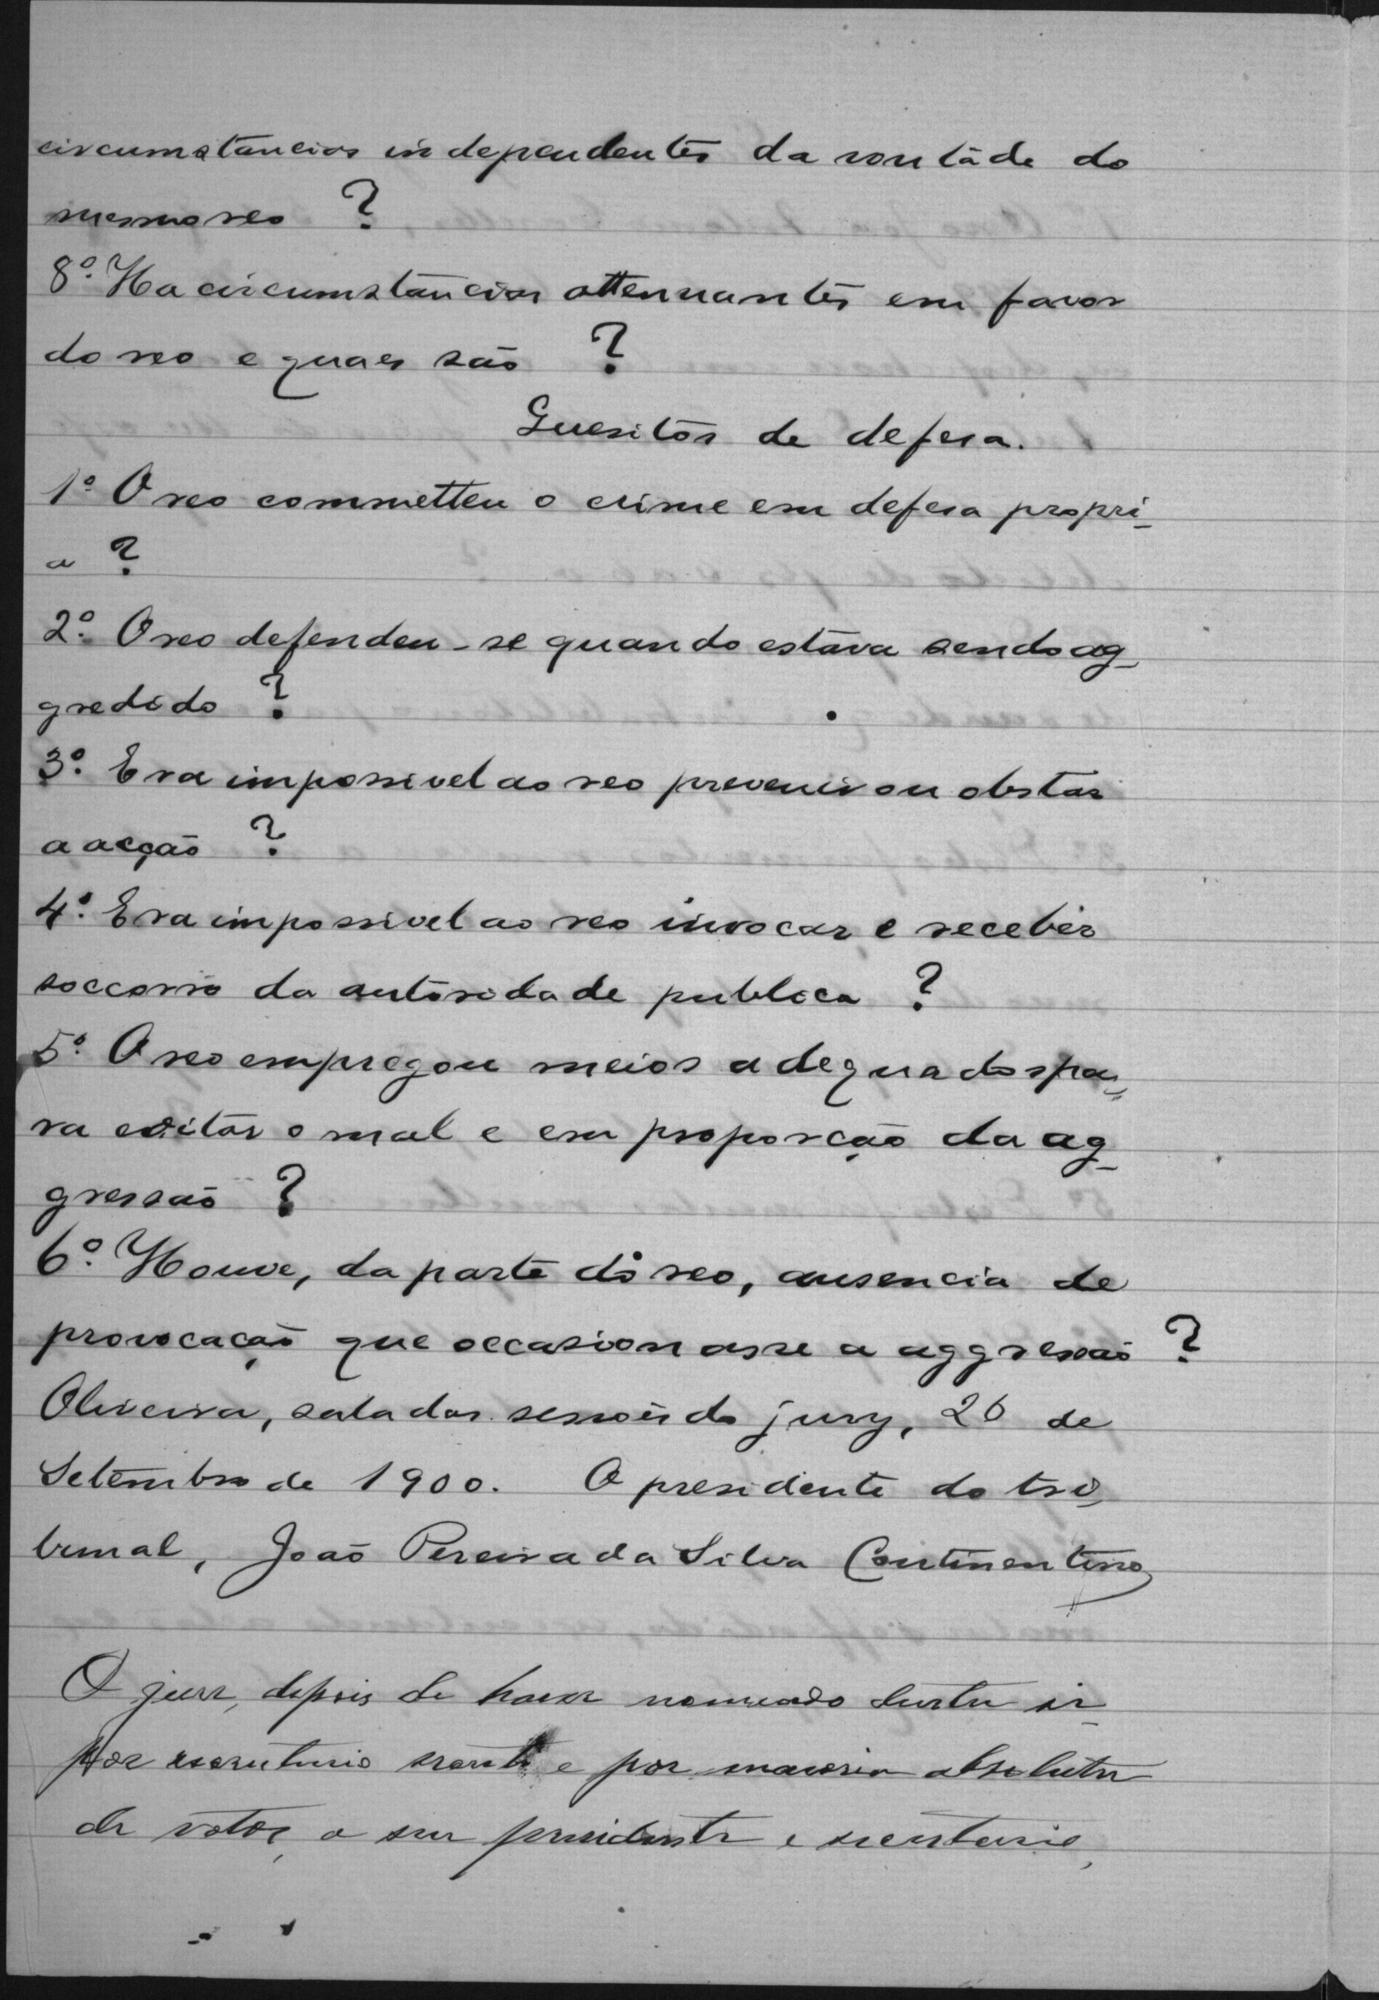 circumstancias independentes da vontade do
mesmo reo ?
8º. Ha circumstancias attenuantes em favor
do reo e quaes são ?
Quesitos de defesa.
1º. O reo commetteu o crime em defesa propri-
a ?
2º. O reo defendeu-se quando estava sendo ag-
gredido ?
3º. Era impossivel ao reo prevenir ou obstar
a acção ?
4º. Era impossivel ao reo invocar e receber
soccorro da autoridade publica ?
5º. O reo empregou meios adequados pa-
ra evitar o mal e em proporção da ag-
gressão ?
6º. Houve, da parte do reo, ausencia de
provocação que occasionasse a aggressão ?
Oliveira, sala das sessões do jury, 26 de
Setembro de 1900. O presidente do tri-
bunal, João Pereira da Silva Continentino
O jury, depois de haver nomeado dentre si
por escrutinio secreto e por maioria absoluta
de votos, o seu presidente e secretario,